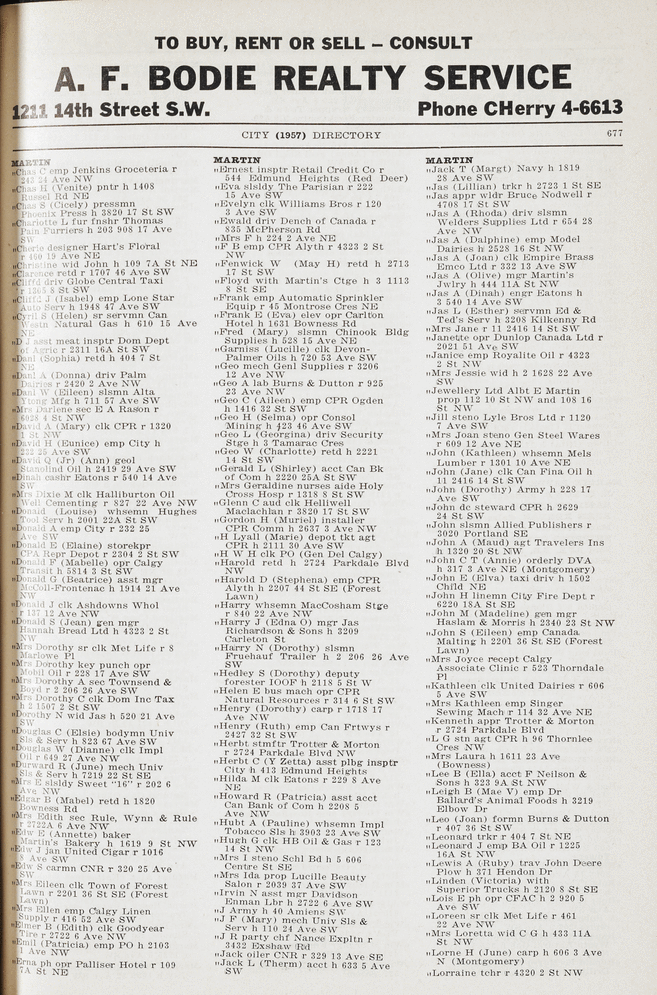 TO BUY, RENT OR SELL – CONSULT
A. F. BODIE REALTY SERVICE
1211 14th Street S.W. Phone CHerry 4-6613
CITY (1957) DIRECTORY 677
MARTIN
„Chas C emp Jenkins Groceteria r
24 Ave NW
„Chas H (Venite) pntr h 1408
Russel Rd NE
„Chas S (Cicely) pressmn
Phoenix Press h 3820 17 St SW
„Charlotte L fur fnshr Thomas
Pain Furriers h 203 908 17 Ave
SW
„Cherie designer Hart's Floral
r 460 19 Ave NE
„Christine wid John h 109 7A St NE
„Clarence retd r 1707 46 Ave SW
„Cliffd driv Globe Central Taxi
r 1365 8 St SW
„Cliffd J (Isabel) emp Lone Star
Auto Serv h 1948 47 Ave SW
„Cyril S (Helen) sr servmn Can
Westn Natural Gas h 610 15 Ave
NE
„D J asst meat insptr Dom Dept
of Agric r 2311 16A St SW
„Danl (Sophia) retd h 404 7 St
NE
„Danl A (Donna) driv Palm
Dairies r 2420 2 Ave NW
„Danl W (Eileen) slsmn Alta
Young Mfg h 711 57 Ave SW
„Mrs Darlene sec E A Rason r
4 St NW
„David A (Mary) clk CPR r 1320
1 St NW
„David H (Eunice) emp City h
222 25 Ave SW
„David Q (Jr) (Ann) geol
Stanolind Oil h 2419 29 Ave SW
„Dinah cashr Eatons r 540 14 Ave
NW
„Mrs Dixie M clk Halliburton Oil
Well Cementing r 827 22 Ave NW
„Donald (Louise) whsemn Hughes
Tool Serv h 2001 22A St SW
„Donald A emp City r 232 25
Ave SW
„Donald E (Elaine) storekpr
CPA Repr Depot r 2304 2 St SW
„Donald F (Mabelle) opr Calgy
Transit h 5814 3 St SW
„Donald G (Beatrice) asst mgr
McColl-Frontenac h 1914 21 Ave
NW
„Donald J clk Ashdowns Whol
r 137 12 Ave NW
„Donald S (Jean) gen mgr
Hannah Bread Ltd h 4323 2 St
NW
„Mrs Dorothy sr clk Met Life r 8
Marlowe Pl
„Mrs Dorothy key punch opr
Mobil Oil r 228 17 Ave SW
„Mrs Dorothy A sec Townsend &
Boyd r 2 206 26 Ave SW
„Mrs Dorothy C clk Dom Inc Tax
h 2 1507 2 St SW
„Dorothy N wid Jas h 520 21 Ave
SW
„Douglas C (Elsie) bodymn Univ
Sls & Serv h 823 67 Ave SW
„Douglas W (Dianne) clk Impl
Oil r 649 27 Ave NW
„Durward R (June) mech Univ
Sls & Serv h 7219 22 St SE
„Mrs E slsldy Sweet "16" r 202 6
Ave NW
„Edgar B (Mabel) retd h 1820
Bowness Rd
„Mrs Edith sec Rule, Wynn & Rule
r 2722A 6 Ave NW
„Edw E (Annette) baker
Martin's Bakery h 1619 9 St NW
„Edw J jan United Cigar r 1016
8 Ave SW
„Edw S carmn CNR r 320 25 Ave
SW
„Mrs Eileen clk Town of Forest
Lawn r 2201 36 St SE (Forest
Lawn)
„Mrs Ellen emp Calgy Linen
Supply r 416 52 Ave SW
„Elmer B (Edith) clk Goodyear
Tire r 2722 6 Ave NW
„Emil (Patricia) emp PO h 2103
1 Ave NW
„Erna ph opr Palliser Hotel r 109
7A St NE
MARTIN
„Ernest insptr Retail Credit Co r
544 Edmund Heights (Red Deer)
„Eva slsldy The Parisian r 222
15 Ave SW
„Evelyn clk Williams Bros r 120
3 Ave SW
„Ewald driv Dench of Canada r
835 McPherson Rd
„Mrs F h 224 2 Ave NE
„F B emp CPR Alyth r 4323 2 St
NW
„Fenwick W (May H) retd h 2713
17 St SW
„Floyd with Martin's Ctge h 3 1113
8 St SE
„Frank emp Automatic Sprinkler
Equip r 45 Montrose Cres NE
„Frank E (Eva) elev opr Carlton
Hotel h 1631 Bowness Rd
„Fred (Mary) slsmn Chinook Bldg
Supplies h 528 15 Ave NE
„Garniss (Lucille) clk Devon-
Palmer Oils h 720 53 Ave SW
„Geo mech Genl Supplies r 3206
12 Ave NW
„Geo A lab Burns & Dutton r 925
23 Ave NW
„Geo C (Aileen) emp CPR Ogden
h 1416 32 St SW
„Geo H (Selma) opr Consol
Mining h 423 46 Ave SW
„Geo L (Georgina) driv Security
Stge h 3 Tamarac Cres
„Geo W (Charlotte) retd h 2221
14 St SW
„Gerald L (Shirley) acct Can Bk
of Com h 2220 25A St SW
„Mrs Geraldine nurses aide Holy
Cross Hosp r 1318 8 St SW
„Glenn C aud clk Helliwell
Maclachlan r 3820 17 St SW
„Gordon H (Muriel) installer
CPR Comm h 2637 3 Ave NW
„H Lyall (Marie) depot tkt agt
CPR h 2111 30 Ave SW
„H W H clk PO (Gen Del Calgy)
„Harold retd h 2724 Parkdale Blvd
NW
„Harold D (Stephena) emp CPR
Alyth h 2207 44 St SE (Forest
Lawn)
„Harry whsemn MacCosham Stge
r 840 22 Ave NW
„Harry J (Edna O) mgr Jas
Richardson & Sons h 3209
Carleton St
„Harry N (Dorothy) slsmn
Fruehauf Trailer h 2 206 26 Ave
SW
„Hedley S (Dorothy) deputy
forester IOOF h 2118 5 St W
„Helen E bus mach opr CPR
Natural Resources r 314 6 St SW
„Henry (Dorothy) carp r 1718 17
Ave NW
„Henry (Ruth) emp Can Frtwys r
2427 32 St SW
„Herbt stmftr Trotter & Morton
r 2724 Parkdale Blvd NW
„Herbt C (Y Zetta) asst plbg insptr
City h 413 Edmund Heights
„Hilda M clk Eatons r 229 8 Ave
NE
„Howard R (Patricia) asst acct
Can Bank of Com h 2208
Ave NW
„Hubt A (Pauline) whsemn Impl
Tobacco Sls h 3903 23 Ave SW
„Hugh G clk HB Oil & Gas r 123
14 St NW
„Mrs I steno Schl Bd h 5 606
Centre St SE
„Mrs Ida prop Lucille Beauty
Salon r 2039 37 Ave SW
„Irvin N asst mgr Davidson
Enman Lbr h 2722 6 Ave NW
„J Army h 40 Amiens SW
„J F (Mary) mech Univ Sls &
Serv h 110 24 Ave SW
„J R party chf Nance Expltn r
3432 Exshaw Rd
„Jack oiler CNR r 329 13 Ave SE
„Jack L (Therm) acct h 633 5 Ave
SW
MARTIN
„Jack T (Margt) Navy h 1819
28 Ave SW
„Jas (Lillian) trkr h 2723 1 St SE
„Jas appr wldr Bruce Nodwell r
4708 17 St SW
„Jas A (Rhoda) driv slsmn
Welders Supplies Ltd r 654 28
Ave NW
„Jas A (Dalphine) emp Model
Dairies h 2528 16 St NW
„Jas A (Joan) clk Empire Brass
Emco Ltd r 332 13 Ave SW
„Jas A (Olive) mgr Martin's
Jwlry h 444 11A St NW
„Jas A (Dinah) engr Eatons h
3 540 14 Ave SW
„Jas L (Esther) servmn Ed &
Ted's Serv h 3208 Kilkenny Rd
„Mrs Jane r 11 2416 14 St SW
„Janette opr Dunlop Canada Ltd r
2021 51 Ave SW
„Janice emp Royalite Oil r 4323
2 St NW
„Mrs Jessie wid h 2 1628 22 Ave
SW
„Jewellery Ltd Albt E Martin
prop 112 10 St NW and 108 16
St NW
„Jill steno Lyle Bros Ltd r 1120
7 Ave SW
„Mrs Joan steno Gen Steel Wares
r 609 12 Ave NE
„John (Kathleen) whsemn Mels
Lumber r 1301 10 Ave NE
„John (Jane) clk Can Fina Oil h
11 2416 14 St SW
„John (Dorothy) Army h 228 17
Ave SW
„John dc steward CPR h 2629
24 St SW
„John slsmn Allied Publishers r
3020 Portland SE
„John A (Maud) agt Travelers Ins
h 1320 20 St NW
„John C T (Annie) orderly DVA
h 317 3 Ave NE (Montgomery)
„John E (Elva) taxi driv h 1502
Child NE
„John H linemn City Fire Dept r
6220 18A St SE
„John M (Madeline) gen mgr
Haslam & Morris h 2340 23 St NW
„John S (Eileen) emp Canada
Malting h 2201 36 St SE (Forest
Lawn)
„Mrs Joyce recept Calgy
Associate Clinic r 523 Thorndale
Pl
„Kathleen clk United Dairies r 606
5 Ave SW
„Mrs Kathleen emp Singer
Sewing Mach r 114 32 Ave NE
„Kenneth appr Trotter & Morton
r 2724 Parkdale Blvd
„L G stn agt CPR h 96 Thornlee
Cres NW
„Mrs Laura h 1611 23 Ave
(Bowness)
„Lee B (Ella) acct F Neilson &
Sons h 323 9A St NW
„Leigh B (Mae V) emp Dr
Ballard's Animal Foods h 3219
Elbow Dr
„Leo (Joan) formn Burns & Dutton
r 407 36 St SW
„Leonard trkr r 404 7 St NE
„Leonard J emp BA Oil r 1225
16A St NW
„Lewis A (Ruby) trav John Deere
Plow h 371 Hendon Dr
„Linden (Victoria) with
Superior Trucks h 2120 8 St SE
„Lois E ph opr CFAC h 2 920 5
Ave SW
„Loreen sr clk Met Life r 461
22 Ave NW
„Mrs Loretta wid C G h 433 11A
St NW
„Lorne H (June) carp h 606 3 Ave
N (Montgomery)
„Lorraine tchr r 4320 2 St NW